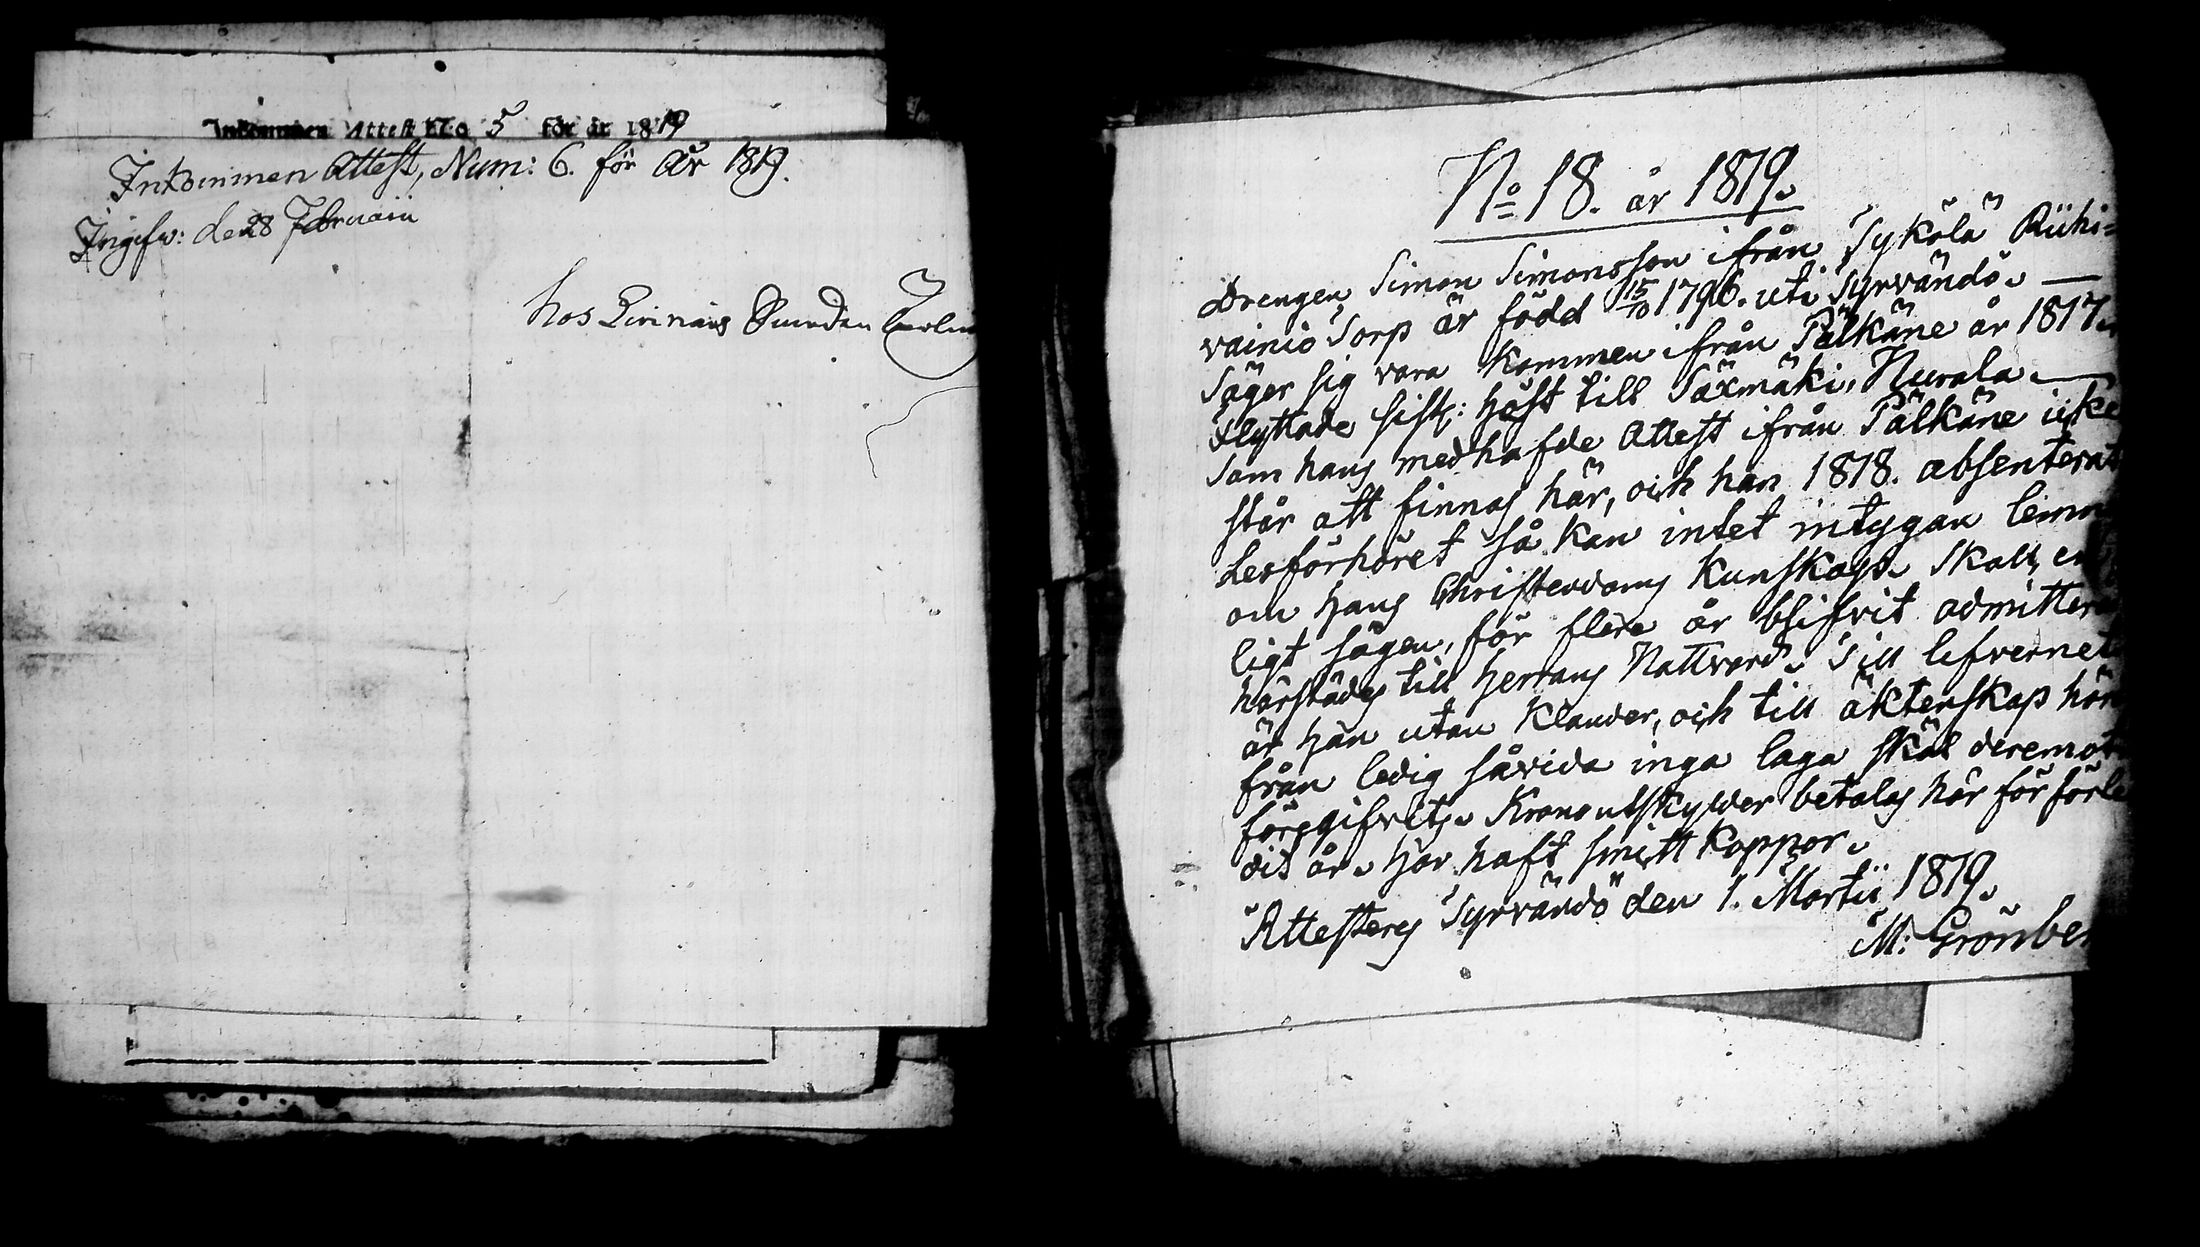 Inkommen Attest No 5 för år 1819
Inkommen Attest, Num: 6. för År 1819.
Ingifw: de 28 Februarii
hos
No 18. år 1819.
Drengen Simon Simonsson ifrån Sykölä Riihi=
vainio Torp är född 15/10 1796. uti Tyrvändö. —
Säger sig vara kommen ifrån Pälkäne år 1817.
Flyttade sistl: höst till Säxmäki, Huvala. —
Som hans medhafde Attest ifrån Pälkäne icke
står att finnas här, och han 1818. absenterat
Lesförhöret så kan intet intygan lemn
om hans Christendoms Kunskap. Skall, en
ligt sägen, för flere år blifvit admitter
härstädes till Herrans Nattvard. Till lefvernet
är han utan klander, och till äktenskap här
från ledig såvida inga laga skäl deremot
föregifvits. Kronoutskylder betalas här för förle
dit år. Har haft smitt koppor.
Attesteras Tyrvändö den 1. Martii 1819.
M: Grönber